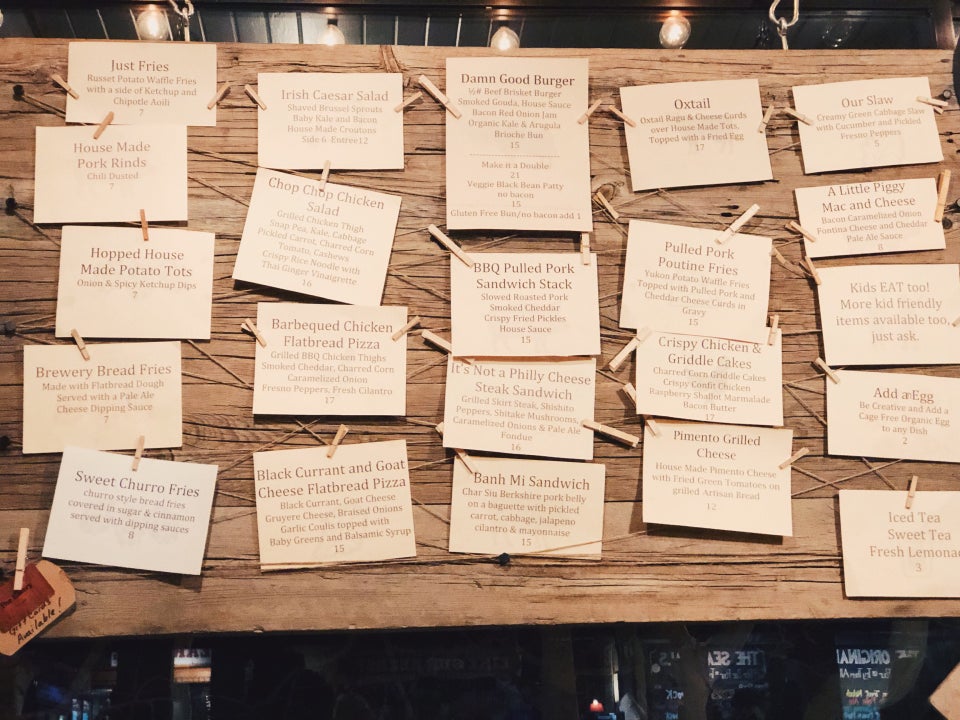 Just Fries
Russet Potato Waffle Fries
with a side of Ketchup and
Chipotle Aoili
7
House Made
Pork Rinds
Chili Dusted
7
Hopped House
Made Potato Tots
Onion & Spicy Ketchup Dips
7
Brewery Bread Fries
Made with Flatbread Dough
Served with a Pale Ale
Cheese Dipping Sauce
7
Sweet Churro Fries
churro style bread fries
covered in sugar & cinnamon
served with dipping sauces
8
Gift Cards
Available!
Irish Caesar Salad
Shaved Brussel Sprouts
Baby Kale and Bacon
House Made Croutons
Side 6 Entree12
Chop Chop Chicken
Salad
Grilled Chicken Thigh
Snap Pea, Kale, Cabbage
Pickled Carrot, Charred Corn
Tomato, Cashews
Crispy Rice Noodle with
Thai Ginger Vinaigrette
16
Barbequed Chicken
Flatbread Pizza
Grilled BBQ Chicken Thighs
Smoked Cheddar, Charred Corn
Caramelized Onion
Fresno Peppers, Fresh Cilantro
17
Black Currant and Goat
Cheese Flatbread Pizza
Black Currant, Goat Cheese
Gruyere Cheese, Braised Onions
Garlic Coulis topped with
Baby Greens and Balsamic Syrup
15
Damn Good Burger
½# Beef Brisket Burger
Smoked Gouda, House Sauce
Bacon Red Onion Jam
Organic Kale & Arugula
Brioche Bun
15
Make it a Double
21
Veggie Black Bean Patty
no bacon
15
Gluten Free Bun/no bacon add 1
BBQ Pulled Pork
Sandwich Stack
Slowed Roasted Pork
Smoked Cheddar
Crispy Fried Pickles
House Sauce
15
It's Not a Philly Cheese
Steak Sandwich
Grilled Skirt Steak, Shishito
Peppers, Shitake Mushrooms,
Caramelized Onions & Pale Ale
Fondue
16
Banh Mi Sandwich
Char Siu Berkshire pork belly
on a baguette with pickled
carrot, cabbage, jalapeno
cilantro & mayonnaise
15
Oxtail
Oxtail Ragu & Cheese Curds
over House Made Tots,
Topped with a Fried Egg
17
Pulled Pork
Poutine Fries
Yukon Potato Waffle Fries
Topped with Pulled Pork and
Cheddar Cheese Curds in
Gravy
15
Crispy Chicken &
Griddle Cakes
Charred Corn Griddle Cakes
Crispy Confit Chicken
Raspberry Shallot Marmalade
Bacon Butter
17
Pimento Grilled
Cheese
House Made Pimento Cheese
with Fried Green Tomatoes on
grilled Artisan Bread
12
Our Slaw
Creamy Green Cabbage Slaw
with Cucumber and Pickled
Fresno Peppers
5
A Little Piggy
Mac and Cheese
Bacon Caramelized Onion
Fontina Cheese and Cheddar
Pale Ale Sauce
8
Kids EAT too!
More kid friendly
items available too,
just ask.
Add æEgg
Be Creative and Add a
Cage Free Organic Egg
to any Dish
2
Iced Tea
Sweet Tea
Fresh Lemona
3
THE SEA
ORIGINA